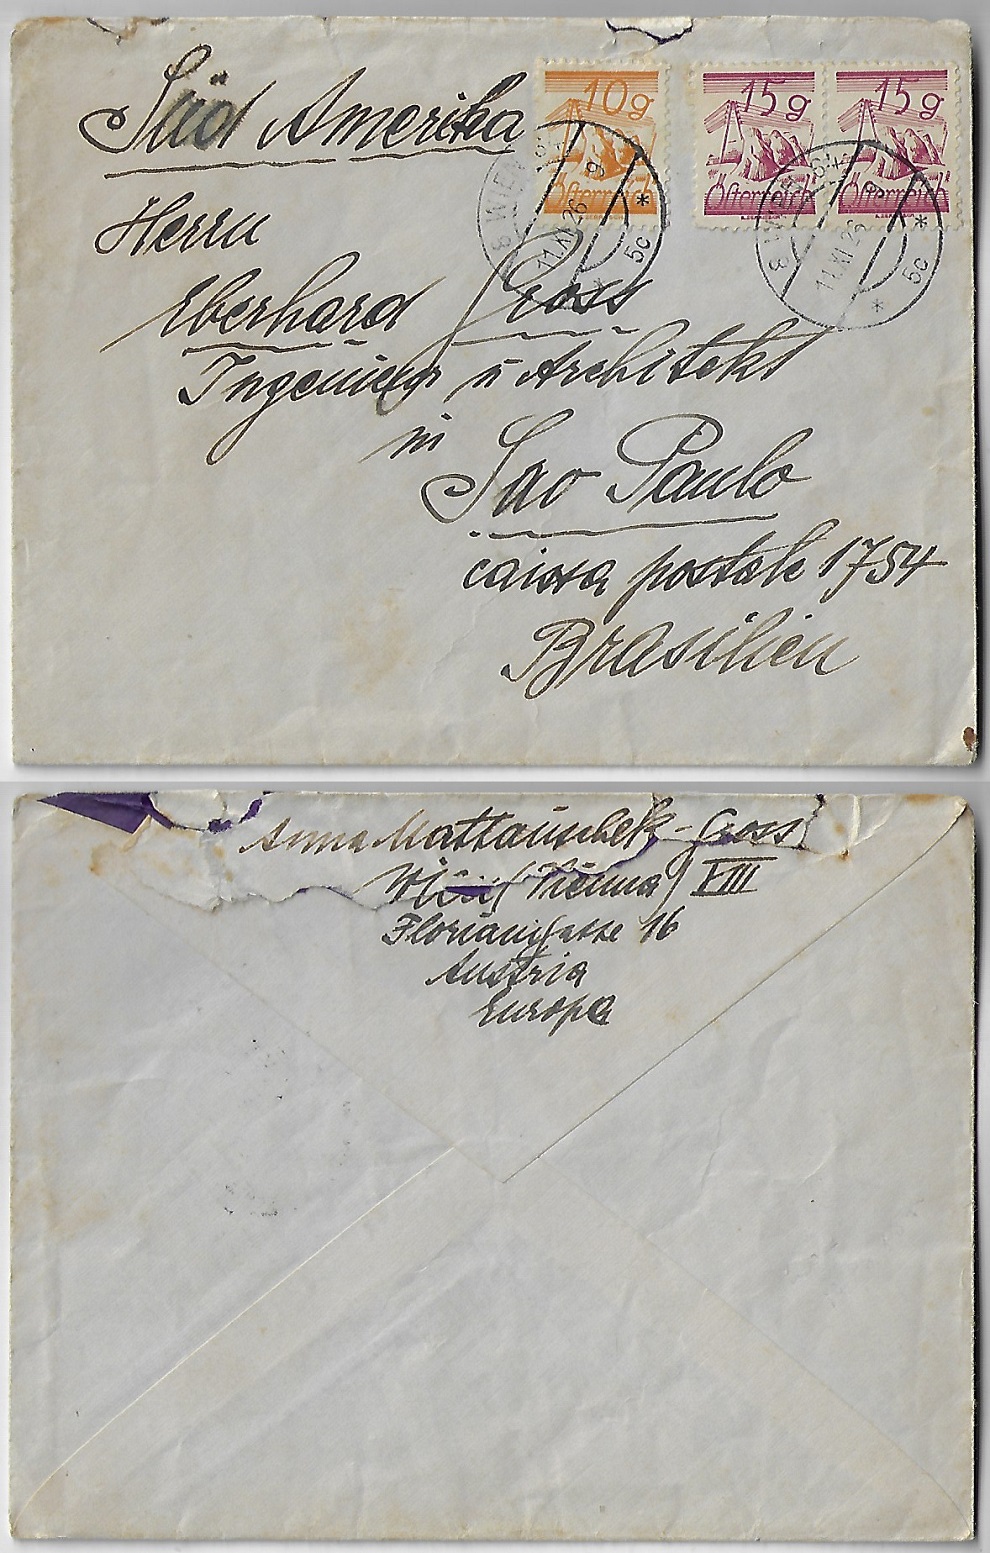 Süd Amerika
10g
15g
15g
Österreich
Österreich
Österreich
8 WIEN
11.XI.26
* 5c *
8 WIEN
11.XI.26
* 5c *
Herrn
Eberhard Gross
Ingenieur u Architekt
in
Sao Paulo
caixa postale 1754
Brasilien
Anna Mattauschek-Gross
Wien (Vienna) VIII
Floriangasse 16
Austria
Europa